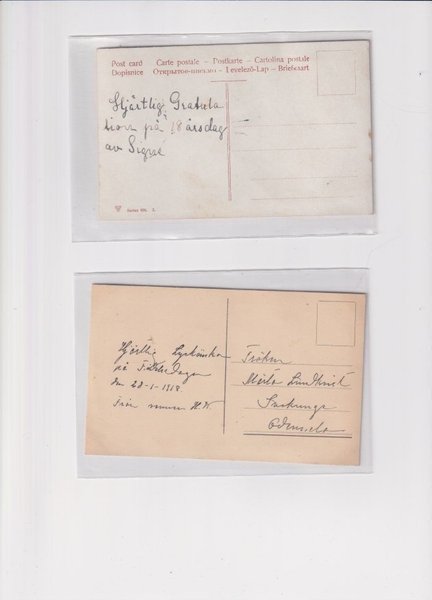 Post card Carte postale – Postkarte – Cartolina postale
Dopisnice Открытое письмо – Levelező-Lap – Briefkaart
Hjärtlig Gratula
tion på 18 årsdag
av Signe
Series
Hjärtlig Lyckönskan
på Födelse Dagen
den 28-1-1918
Från H.W.
Fröken
Märta Lundkvist